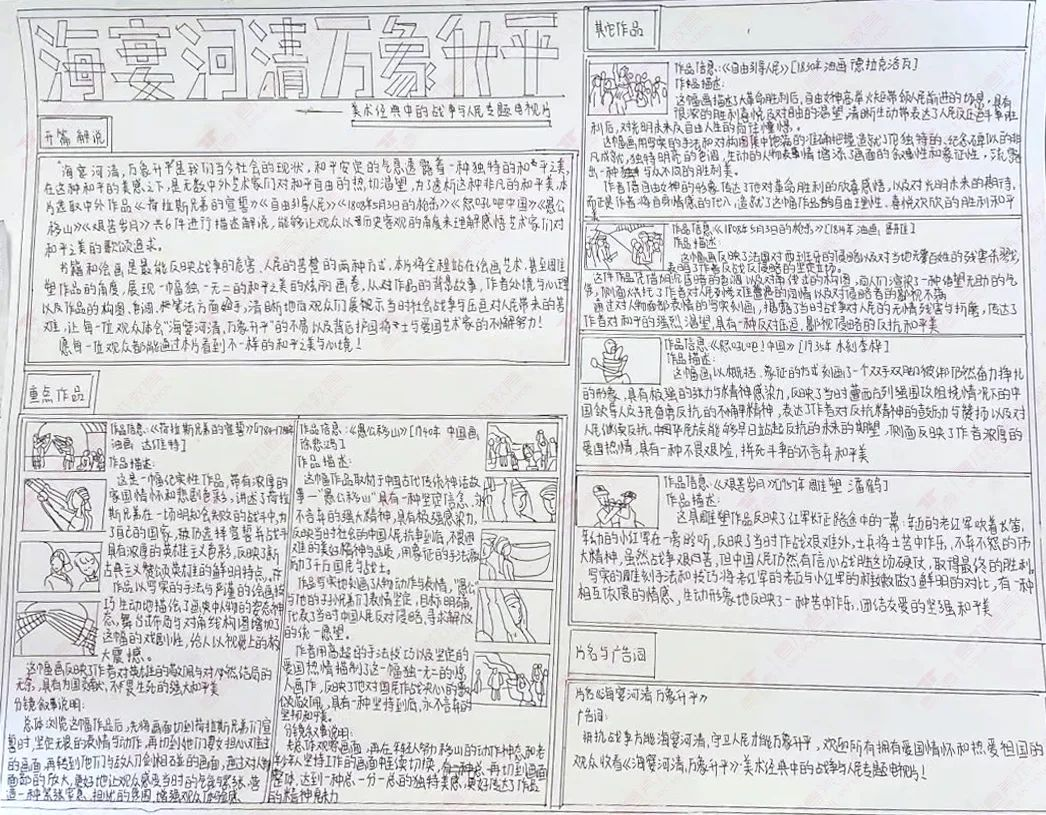 海宴河清万象升平
美术经典中的战争与人民专题电视片
开篇解说
"海宴河清,万象升平是我们当今社会的现状,和平安定的气息透露着一种独特的和平之美,
在这种和平的美感之下,是无数中外艺术家们对和平自由的热切渴望,为了透析这种非凡的和平美,本
片选取中外作品《荷拉斯兄弟的宣誓》《自由引导人民》《1808年5月3日的枪杀》《怒吼吧中国》《愚公
移山》《艰苦岁月》共6件进行描述解说,能够让观众以历史客观的角度来理解感悟艺术家们对
和平之美的歌颂追求。
书籍和绘画是最能反映战争的危害、人民的苦楚的两种方式,本片将全程站在绘画艺术,甚至雕
塑作品的角度,展现一幅独一无二的和平美的炫丽画卷,从对作品的背景故事,作者处境与心理
以及作品的构图,色调,和笔法方面着手,清晰地向观众们展示当时社会战争与压迫对人民带来的苦
难,让每一位观众体会"海宴河清,万象升平"的不易以及背后护国将士与爱国艺术家的不懈努力!
愿每一位观众都能通过本片看到不一样的和平之美与心境!
重点作品
作品信息:《荷拉斯兄弟的宣誓》
油画 达维特]
作品描述:
这是一幅纪实性作品,带有浓厚的
家国情怀和悲剧色彩,讲述了荷拉
斯兄弟在一场明知会失败的战斗中,为
了自己的国家,被历选择宣誓并战斗
具有浓厚的英雄主义色彩,反映了新
古典主义赞颂英雄性的鲜明特点。在
作品以写实的手法与严谨的绘画技
巧生动地描绘了画束中人物的姿态神
态,舞台式布局与对角线构图增加了
这幅的戏剧性,给人以视觉上的极
大震撼。
这幅画反映了作者对英雄性的歌颂与对必然结局的
无奈,具有为国奋献,不畏生死的强大和平美
分镜叙事说明:
总体浏览这幅作品后,先将画面切到荷拉斯兄弟们宣
誓时,坚定无畏的表情与动作,再切到他们妻女担心难过
的画面,再转到他们与敌人刀剑相碰的画面,通过对人物
面部的放大,更好地让观众感受当时的气氛与紧张,营
造一种紧张窒息,担忧的氛围,增强观众体验感
作品信息:《愚公移山》[1940年 中国画
徐悲鸿]
作品描述:
这幅作品取材于中国古代传统神话故
事—"愚公移山"具有一种坚定信念,永
不言弃的强大精神,具有极强感染力,
反映出当时社会的中国人民抗争到底,不畏困
难的美好精神与品质,用象征的手法激
励了千万国民与战士。
作品写实地刻画了人物动作与表情,"愚公"
与他的子孙兄弟们表情坚定,目标明确,
代表了当时中国人民反对侵略,寻求解放
的统一愿望。
作者用高超的手法技巧以及坚定的
爱国热情描刻了这一幅独一无二的惊
人画作,反映了他对国民作战决心的
具有一种坚持到底,永不言弃的
坚韧和平美。
分镜叙事说明:
先总体观察画面,再在年轻人努力移山的动作神态和老
年人坚持工作的画面中连续切换,有一种总,再切到画面
整体,达到一种总一分一总的独特美感,更好传达了作品
的精神魅力
其它作品
作品信息:《自由引导人民》[1830年 油画 德拉克洛瓦]
作品描述:
这幅画描述了大革命胜利后,自由女神高举火炬带领人民前进的场景,具有
很浓的胜利喜悦及对自由的渴望,清晰生动带表达了人民反压迫斗争胜
利后,对光明未来及自由人生的向往憧憬。
这幅画,用写实的手法和对构图集中饱满的准确把握造就了他独特的、纪念碑似的非
凡成就,独特明亮的色调,生动的人物表事情增添了画面的叙事性和象征性,流露
出一种独特与众不同的胜利美。
作者借自由女神的形象,传达了他对革命胜利的欣喜感悟,以及对光明未来的期待,
而正是作者将自身情感的代入,造就了这幅作品的自由理性、喜悦欢欣的胜利和平
美
作品信息《1808年5月3日的枪杀》[1814年 油画 ]
作品描述:
这幅画反映了法国对西班牙的侵略以及对当地无辜百姓的残害杀戮,
表明了作者反战反侵略的坚定立场。
这件作品凭借阴沉昏暗的色调以及对角线式的构图,向人们渲染了一种绝望无助的气
氛,侧面烘托了作者对人民到处难遭遇的同情以及对侵略者的鄙视不屑
通过对人物面部表情的写实刻画,揭露了当时战争对人民的无情残害与折磨,传达了
作者对和平的强烈渴望,具有一种反对压迫,鄙视侵略的反抗和平美
作品信息《怒吼吧!中国》[1935年 木刻 李桦]
作品描述:
这幅画,以概括、象征的方式刻画了一个双手双脚被绑仍然奋力挣扎
的形象,具有极强的张力与精神感染力,反映了当时曹西方列强围攻阻挠情况下的中
国领导人及子民自勇反抗的不屈精神,表达了作者对反抗精神的鼓励与赞扬以及对
人民继续反抗,中国平民族能够早日站起反抗的未来的期望,侧面反映了作者浓厚的
爱国热情,具有一种不畏艰险,拼死斗争的不言弃和平美
作品信息《艰苦岁月》[1957年 雕塑 潘鹤]
作品描述:
这具雕塑作品反映了红军长征路途中的一幕:年迈的老红军吹着长笛,
年幼的小红军在一旁聆听,反映了当时作战艰难外,士兵将士苦中作乐,不弃不怨的伟
大精神,虽然战争艰难困苦,但中国人民仍然有信心战胜这场硬仗,取得最终的胜利。
写实的雕刻手法和技巧将老红军的老迈与小红军的稚嫩做了鲜明的对比,有一种
相互依偎的情感,生动形象地反映了一种苦中作乐,团结友爱的坚强和平美
片名与广告词
片名《海宴河清,万象升平》
广告词:
拥抗战事方能海宴河清,守卫人民才能万象升平,欢迎所有拥有爱国情怀和热爱祖国的
观众收看《海宴河清,万象升平》:美术经典中的战争与人民专题电视片!